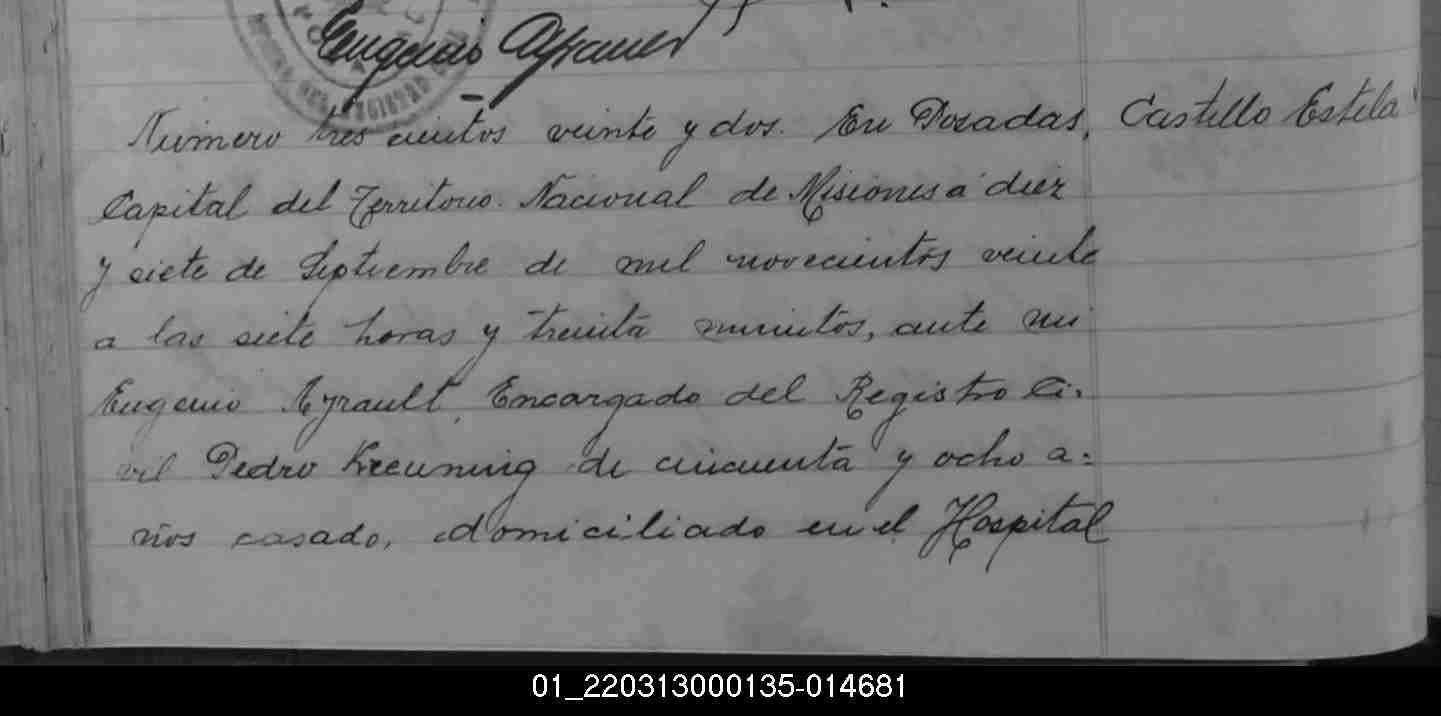 Eugenio Ayrault
Número tres cientos veinte y dos. En Posadas, Castillo Estela
Capital del Territorio. Nacional de Misiones á diez
y siete de Septiembre de mil novecientos veinte
a las siete horas y treinta minutos, ante mi
Eugenio Ayrault, Encargado del Registro Ci-
vil Pedro Kreuning de cincuenta y ocho a-
ños casado, domiciliado en el Hospital
01_220313000135-014681